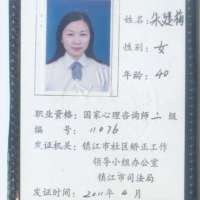 姓名：朱建梅
性别：女
年龄：40
职业资格：国家心理咨询师二级
编　号：11076
发证机关：镇江市社区矫正工作
领导小组办公室
镇江市司法局
发证时间：2011年4月